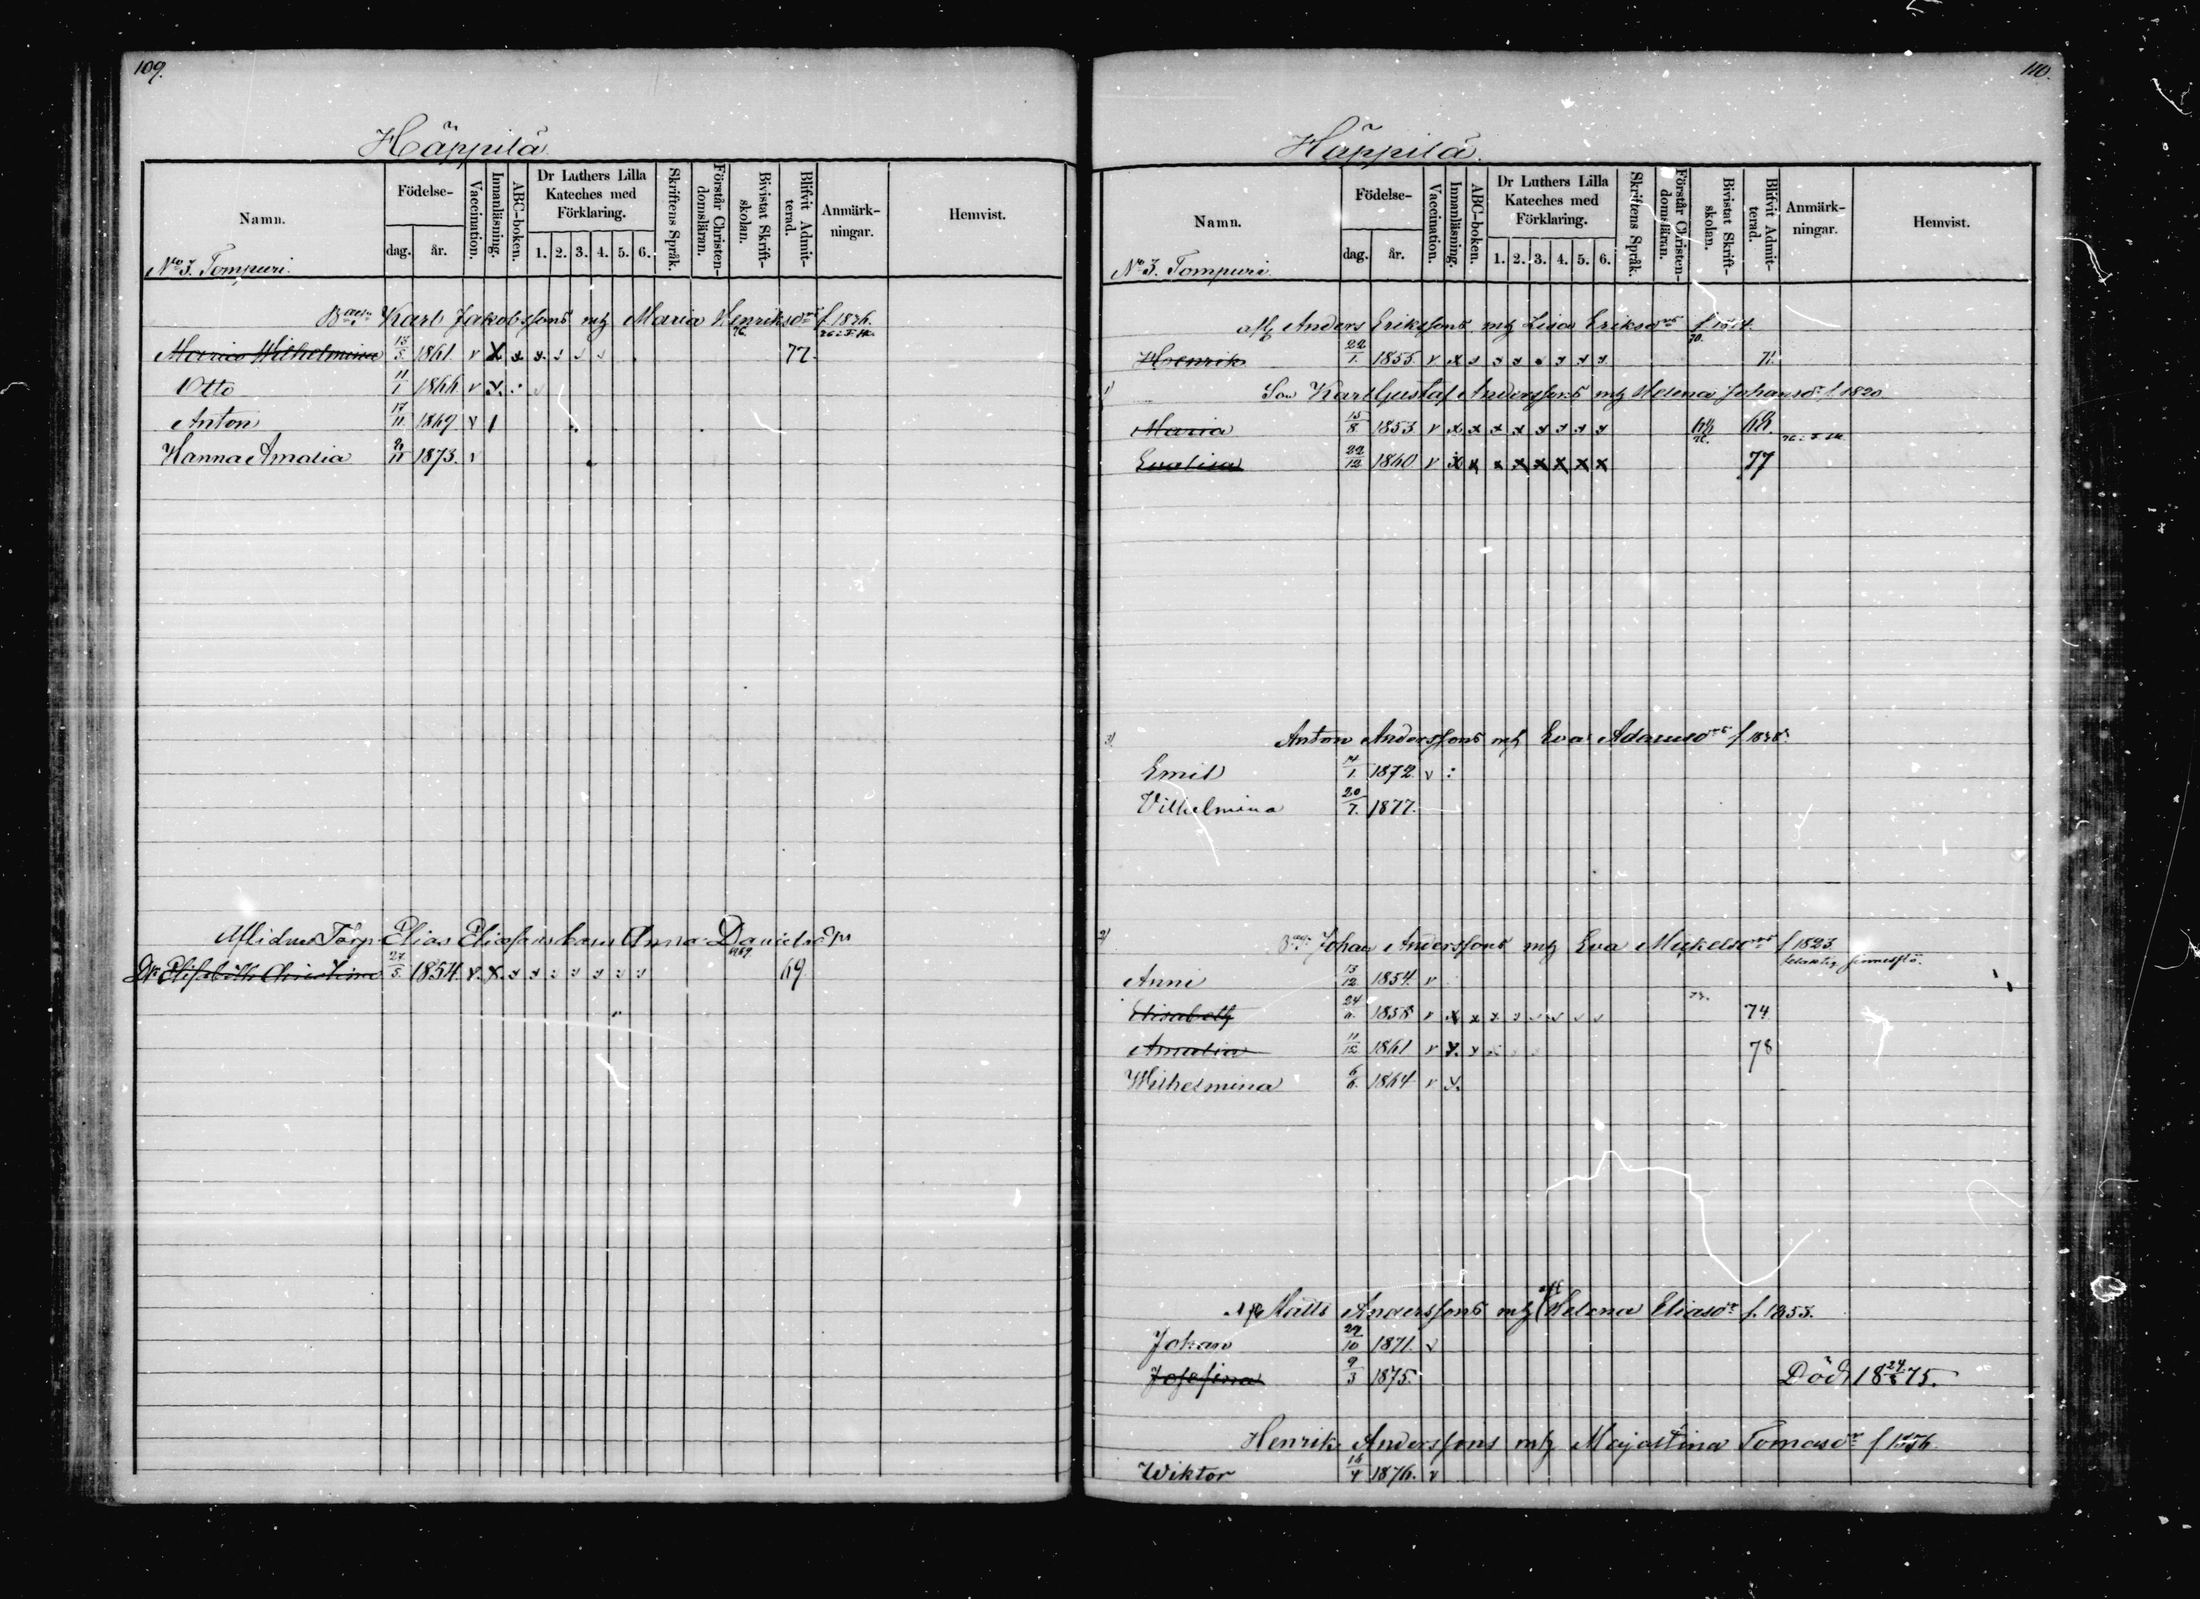 109.
Häppilä
Namn.
Födelse-
dag. år.
Vaccination.
Innanläsning.
ABC-boken.
Dr Luthers Lilla
Kateches med
Förklaring.
1. 2. 3. 4. 5. 6.
Skriftens Språk.
Förstår Christen-
domsläran.
Bivistat Skrift-
skolan.
Blifvit Admit-
terad.
Anmärk-
ningar.
Hemvist.
No 3. Tompuri.
Karl Jakobssons mg Maria Henriksd f. 1826.
76.
Maria Wilhelmina 13/5 1861 v x x x 77.
Otto 11/1 1866 v x
Anton 17/11 1869 v
Hanna Amalia 1873. v
Aflidne Torp Elias Eliassons Anna Danielsd
Elisabeth Christina 27/5 1854. v x 69
110.
Häppilä.
Namn.
Födelse-
dag. år.
Vaccination.
Innanläsning.
ABC-boken.
Dr Luthers Lilla
Kateches med
Förklaring.
1. 2. 3. 4. 5. 6.
Skriftens Språk.
Förstår Christen-
domsläran.
Bivistat Skrift-
skolan.
Blifvit Admit-
terad.
Anmärk-
ningar.
Hemvist.
No 3. Tompuri
Anders Erikssons mg Lisa Eriksd
70.
Henrik 22/1 1855 v x x x x x x x x 71.
1) Son Karl Gustaf Anderssons mg Helena Johansd f. 1820
Maria 15/8 1853 v x x x x x x x x 68.
Evalisa 22/12 1860 v x x x x x x x x 77
3) Anton Anderssons mg Eva Adamsd
Emil 1872. v :
Vilhelmina 20/7. 1877.
2) Johan Anderssons mg Eva Mickelsd f 1823
Anni 13/12 1854. v
Elisabeth 1858 v x x x 74
Amalia 11/12 1861 v x x 78
Wilhelmina 6/6 1864 v x.
Matts Anderssons mg Helena Eliasd f. 1833.
Johan 29/10 1871. v
Josefina 9/3 1875. Död 18 24 75.
Henrik Anderssons mg Majastina Tomasd
Wiktor 1876. v